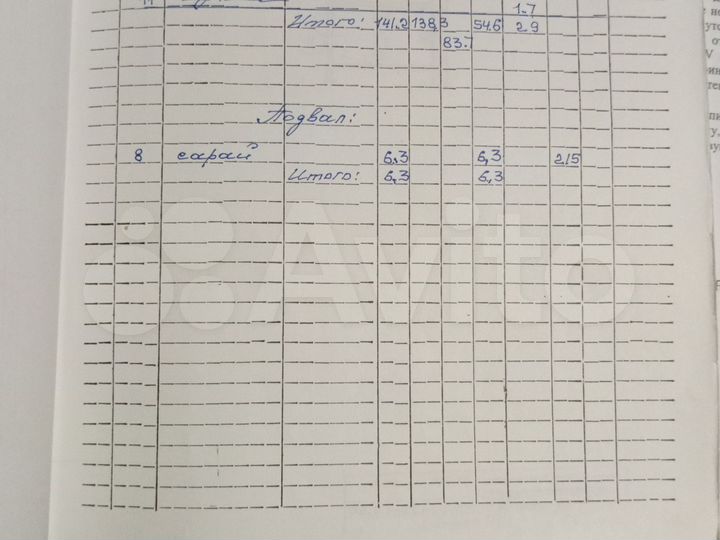 1.7
Итого: 141.2 138,3 54.6 2.9
83.7
Подвал:
8 сарай 6.3 6,3 2,15
Итого: 6,3 6,3
Avito